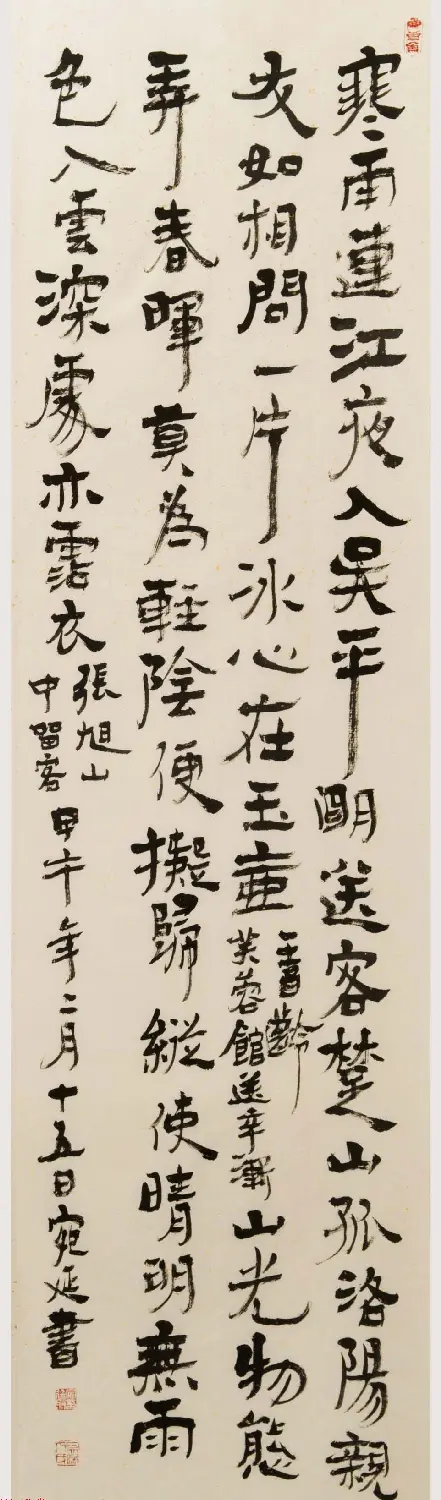 寒雨連江夜入吴平明送客楚山孤洛陽親
友如相問一片冰心在玉壺
王昌齡
芙蓉館送辛漸
山光物態
弄春暉莫為輕陰便擬歸縱使晴明無雨
色入雲深處亦霑衣
張旭山
中留客
甲午年二月十五日宛延書